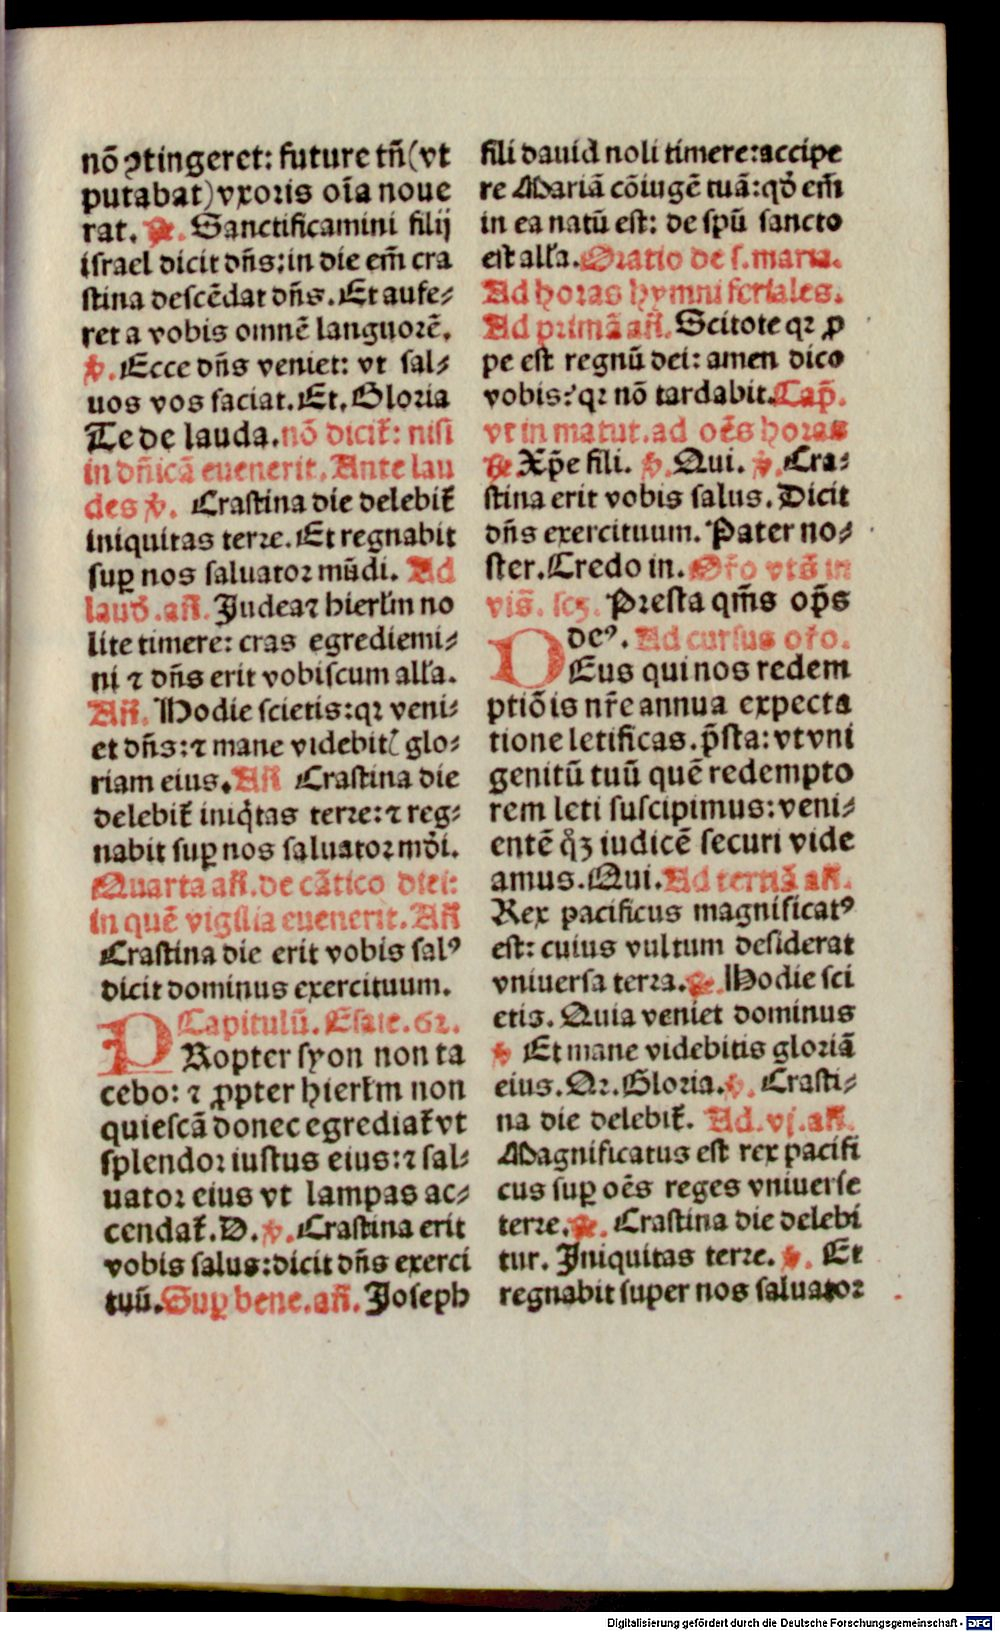 nō ꝯtingeret: future tn̄ (vt
putabat) vxoris oīa noue
rat. ℟. Sanctificamini filij
israel dicit dn̄s: in die em̄ cra
stina descēdat dn̄s. Et aufe⸗
ret a vobis omnē languorē.
℣. Ecce dn̄s veniet: vt sal⸗
uos vos faciat. Et. Gloria
Te de lauda. nō dicit̄: nisi
in dn̄icā euenerit. Ante lau
des ℣. Crastina die delebit̄
iniquitas terre. Et regnabit
suꝑ nos saluator mūdi. Ad
laud̄. an̄. Judea ⁊ hierl̄m no
lite timere: cras egrediemi⸗
ni ⁊ dn̄s erit vobiscum all̄a.
An̄. Hodie scietis: qꝛ veni⸗
et dn̄s: ⁊ mane videbit̄ glo⸗
riam eius. An̄ Crastina die
delebit̄ iniq̄tas terre: ⁊ reg⸗
nabit suꝑ nos saluator mōi.
Quarta an̄. de cātico diei:
in quē vigilia euenerit. An̄
Crastina die erit vobis salꝰ
dicit dominus exercituum.
Capitulū. Esaie. 62.
PRopter syon non ta
cebo: ⁊ ꝓpter hierl̄m non
quiescā donec egrediat̄ vt
splendor iustus eius: ⁊ sal⸗
uator eius vt lampas ac⸗
cendat̄. D. ℣. Crastina erit
vobis salus: dicit dn̄s exerci
tuū. Suꝑ bene. an̄. Joseph
fili dauid noli timere: accipe
re Mariā cōiugē tuā: qd̄ em̄
in ea natū est: de spū sancto
est all̄a. Oratio de s. maria.
Ad horas hymni feriales.
Ad primā an̄. Scitote qꝛ ꝓ
pe est regnū dei: amen dico
vobis: qꝛ nō tardabit. Cap̄.
vt in matut. ad oēs horas
℟ Xp̄e fili. ℣. Qui. ℣. Cra⸗
stina erit vobis salus. Dicit
dn̄s exercituum. Pater no⸗
ster. Credo in. Or̄o vts̄ in
vis̄. scꝫ. Presta qm̄s op̄s
deꝰ. Ad cursus or̄o.
DEus qui nos redem
ptiōis nr̄e annua expecta
tione letificas. p̄sta: vt vni
genitū tuū quē redempto
rem leti suscipimus: veni⸗
entē qꝫ iudicē securi vide
amus. Qui. Ad tertiā an̄.
Rex pacificus magnificatꝰ
est: cuius vultum desiderat
vniuersa terra. ℟. Hodie sci
etis. Quia veniet dominus
℣ Et mane videbitis gloriā
eius. Qꝛ. Gloria. ℣. Crasti⸗
na die delebit̄. Ad. vj. an̄.
Magnificatus est rex pacifi
cus suꝑ oēs reges vniuerse
terre. ℟. Crastina die delebi
tur. Iniquitas terre. ℣. Et
regnabit super nos saluator
Digitalisierung gefördert durch die Deutsche Forschungsgemeinschaft - DFG